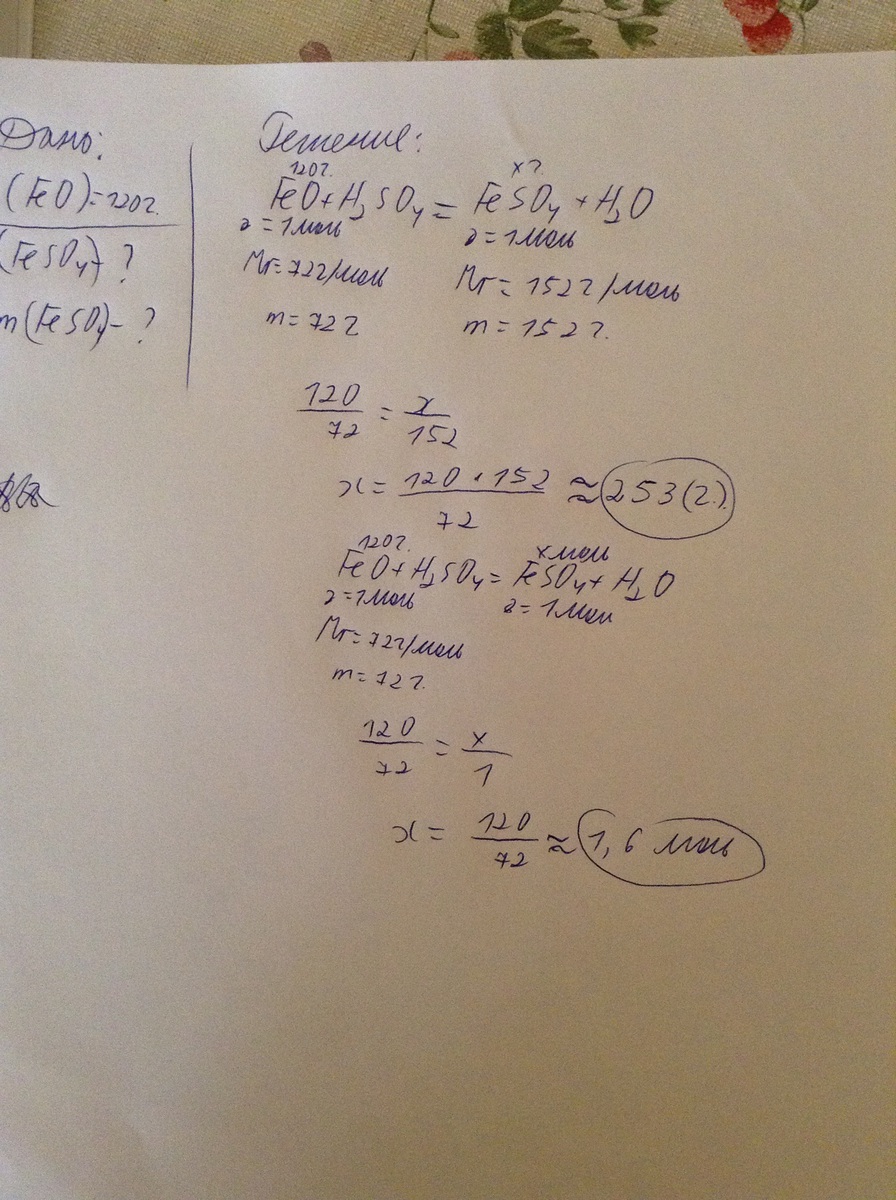 Дано:
(FeO)=120г.
(FeSO4)-?
m(FeSO4)-?
Решение:
120г. xг.
FeO+H2SO4=FeSO4+H2O
ν=1моль ν=1моль
Mr=72г/моль Mr=152г/моль
m=72г m=152г.
120/72=x/152
x=120·152/72≈253(г.)
120г. xмоль
FeO+H2SO4=FeSO4+H2O
ν=1моль ν=1моль
Mr=72г/моль
m=72г.
120/72=x/1
x=120/72≈1,6 моль